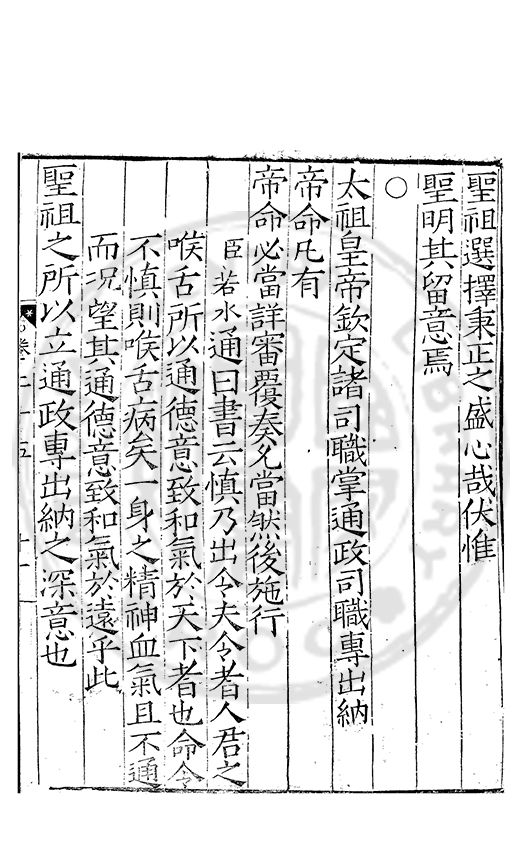 聖祖選擇秉正之盛心哉伏惟
聖明其留意焉
○
太祖皇帝欽定諸司職掌通政司職專出納
帝命凡有
帝命必當詳審覆奏允當然後施行
臣若水通曰書云慎乃出令夫令者人君之
喉舌所以通德意致和氣於天下者也命令
不慎則喉舌病矣一身之精神血氣且不通
而況望其通德意致和氣於遠乎此
聖祖之所以立通政專出納之深意也
卷二十五
十一